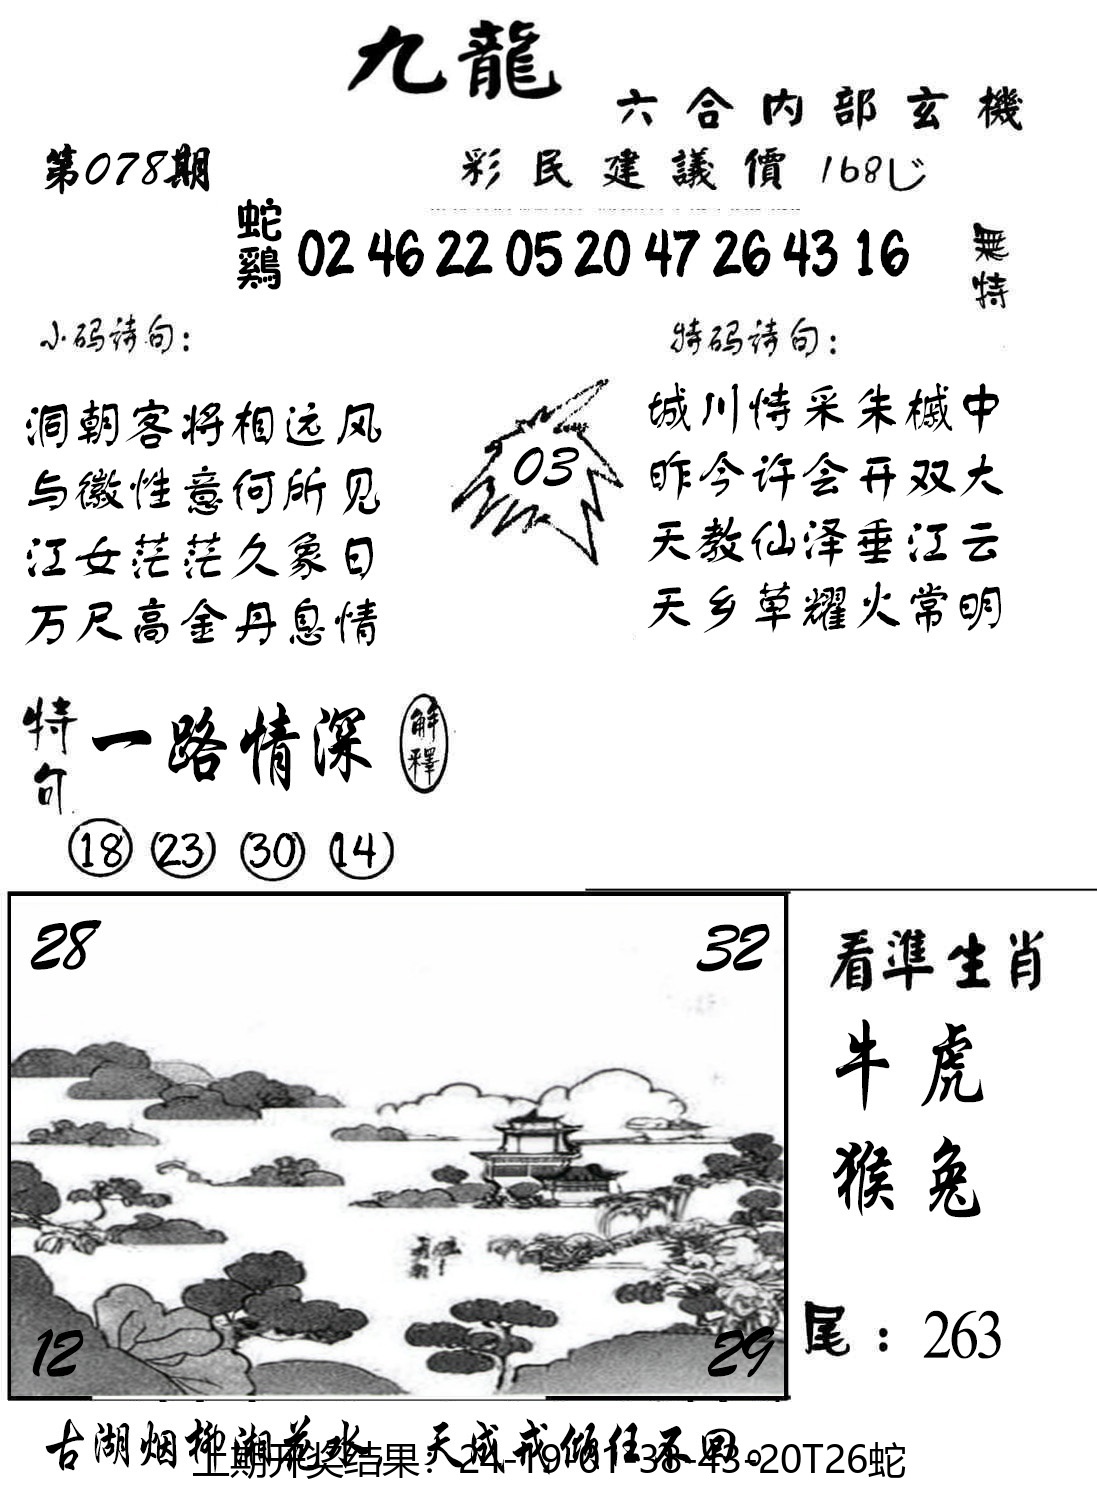 九龍
六合内部玄機
第078期
彩民建議價 168
蛇鷄 02 46 22 05 20 47 26 43 16 無特
小码诗句：
洞朝客将相远风
与徽性意何所见
江女茫茫久象日
万尺高金丹息情
03
特码诗句：
城川恃采朱槭中
昨今许会开双大
天教仙泽垂江云
天乡草耀火常明
特句 一路情深 解釋
18 23 30 14
28 32
12 29
看準生肖
牛虎
猴兔
尾：263
古湖烟柳湘花水 天成戒倾任不回。
上期开奖结果：24-19-01-38-43-20T26蛇